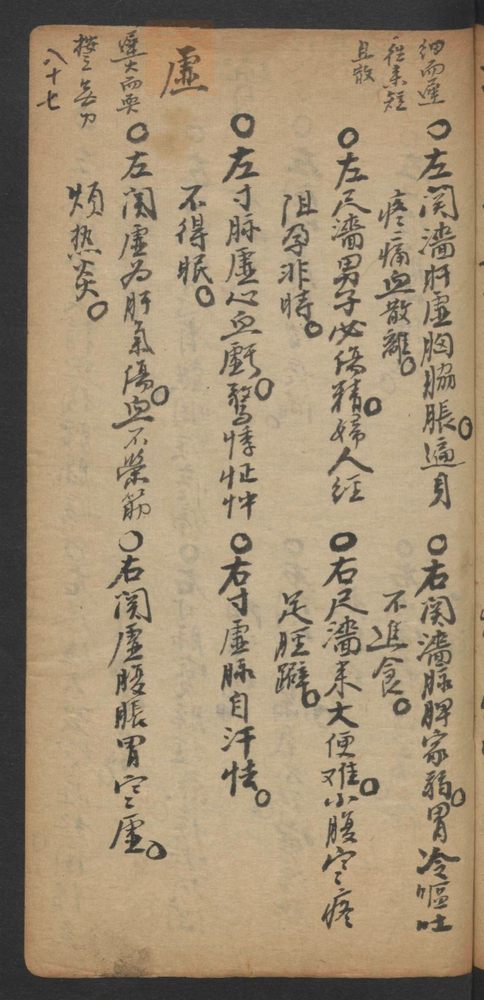 細而遲
往來短
且散
○左関濇肝虛胸脇脹○遍身
疼痛血散離○
○右関濇脉脾家弱○胃冷嘔吐
不進食○
○左尺濇男子必傷精○婦人經
阻孕非時○
○右尺濇來大便难○小腹空疼
足脛躃○
虛
○左寸脉虛心血虧○驚悸怔忡
不得眠○
○右寸虛脉自汗怯○
遲大而耎
按之無力
○左関虛為肝氣傷○血不榮筋
煩热炎○
○右関虛腹脹胃空虛○
八十七